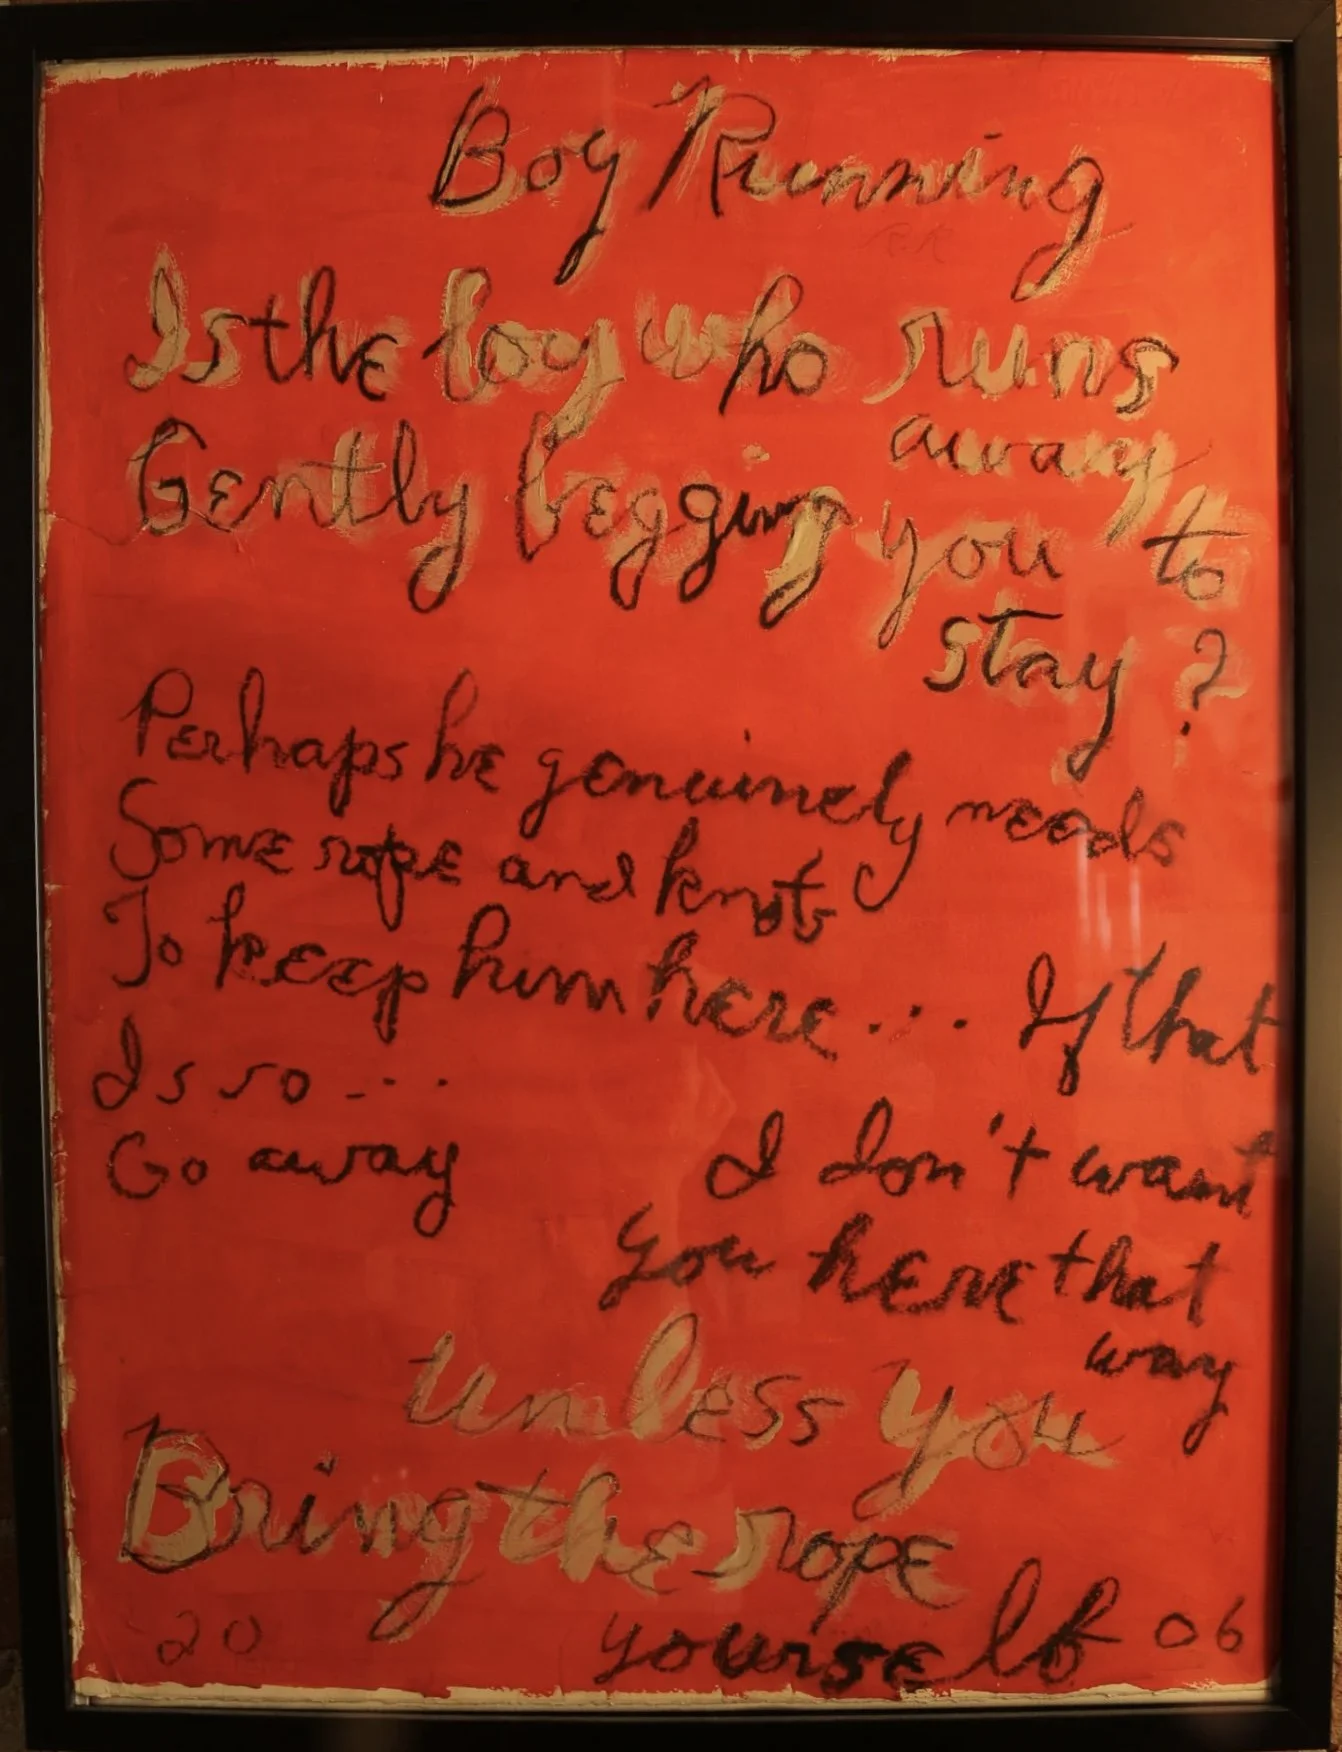 Boy Running
Is the boy who runs
away
Gently begging you to
stay?
Perhaps he genuinely needs
Some rope and knots
To keep him here... If that
Is so...
Go away I don't want
you here that
way
unless you
Bring the rope
yourself
20 06